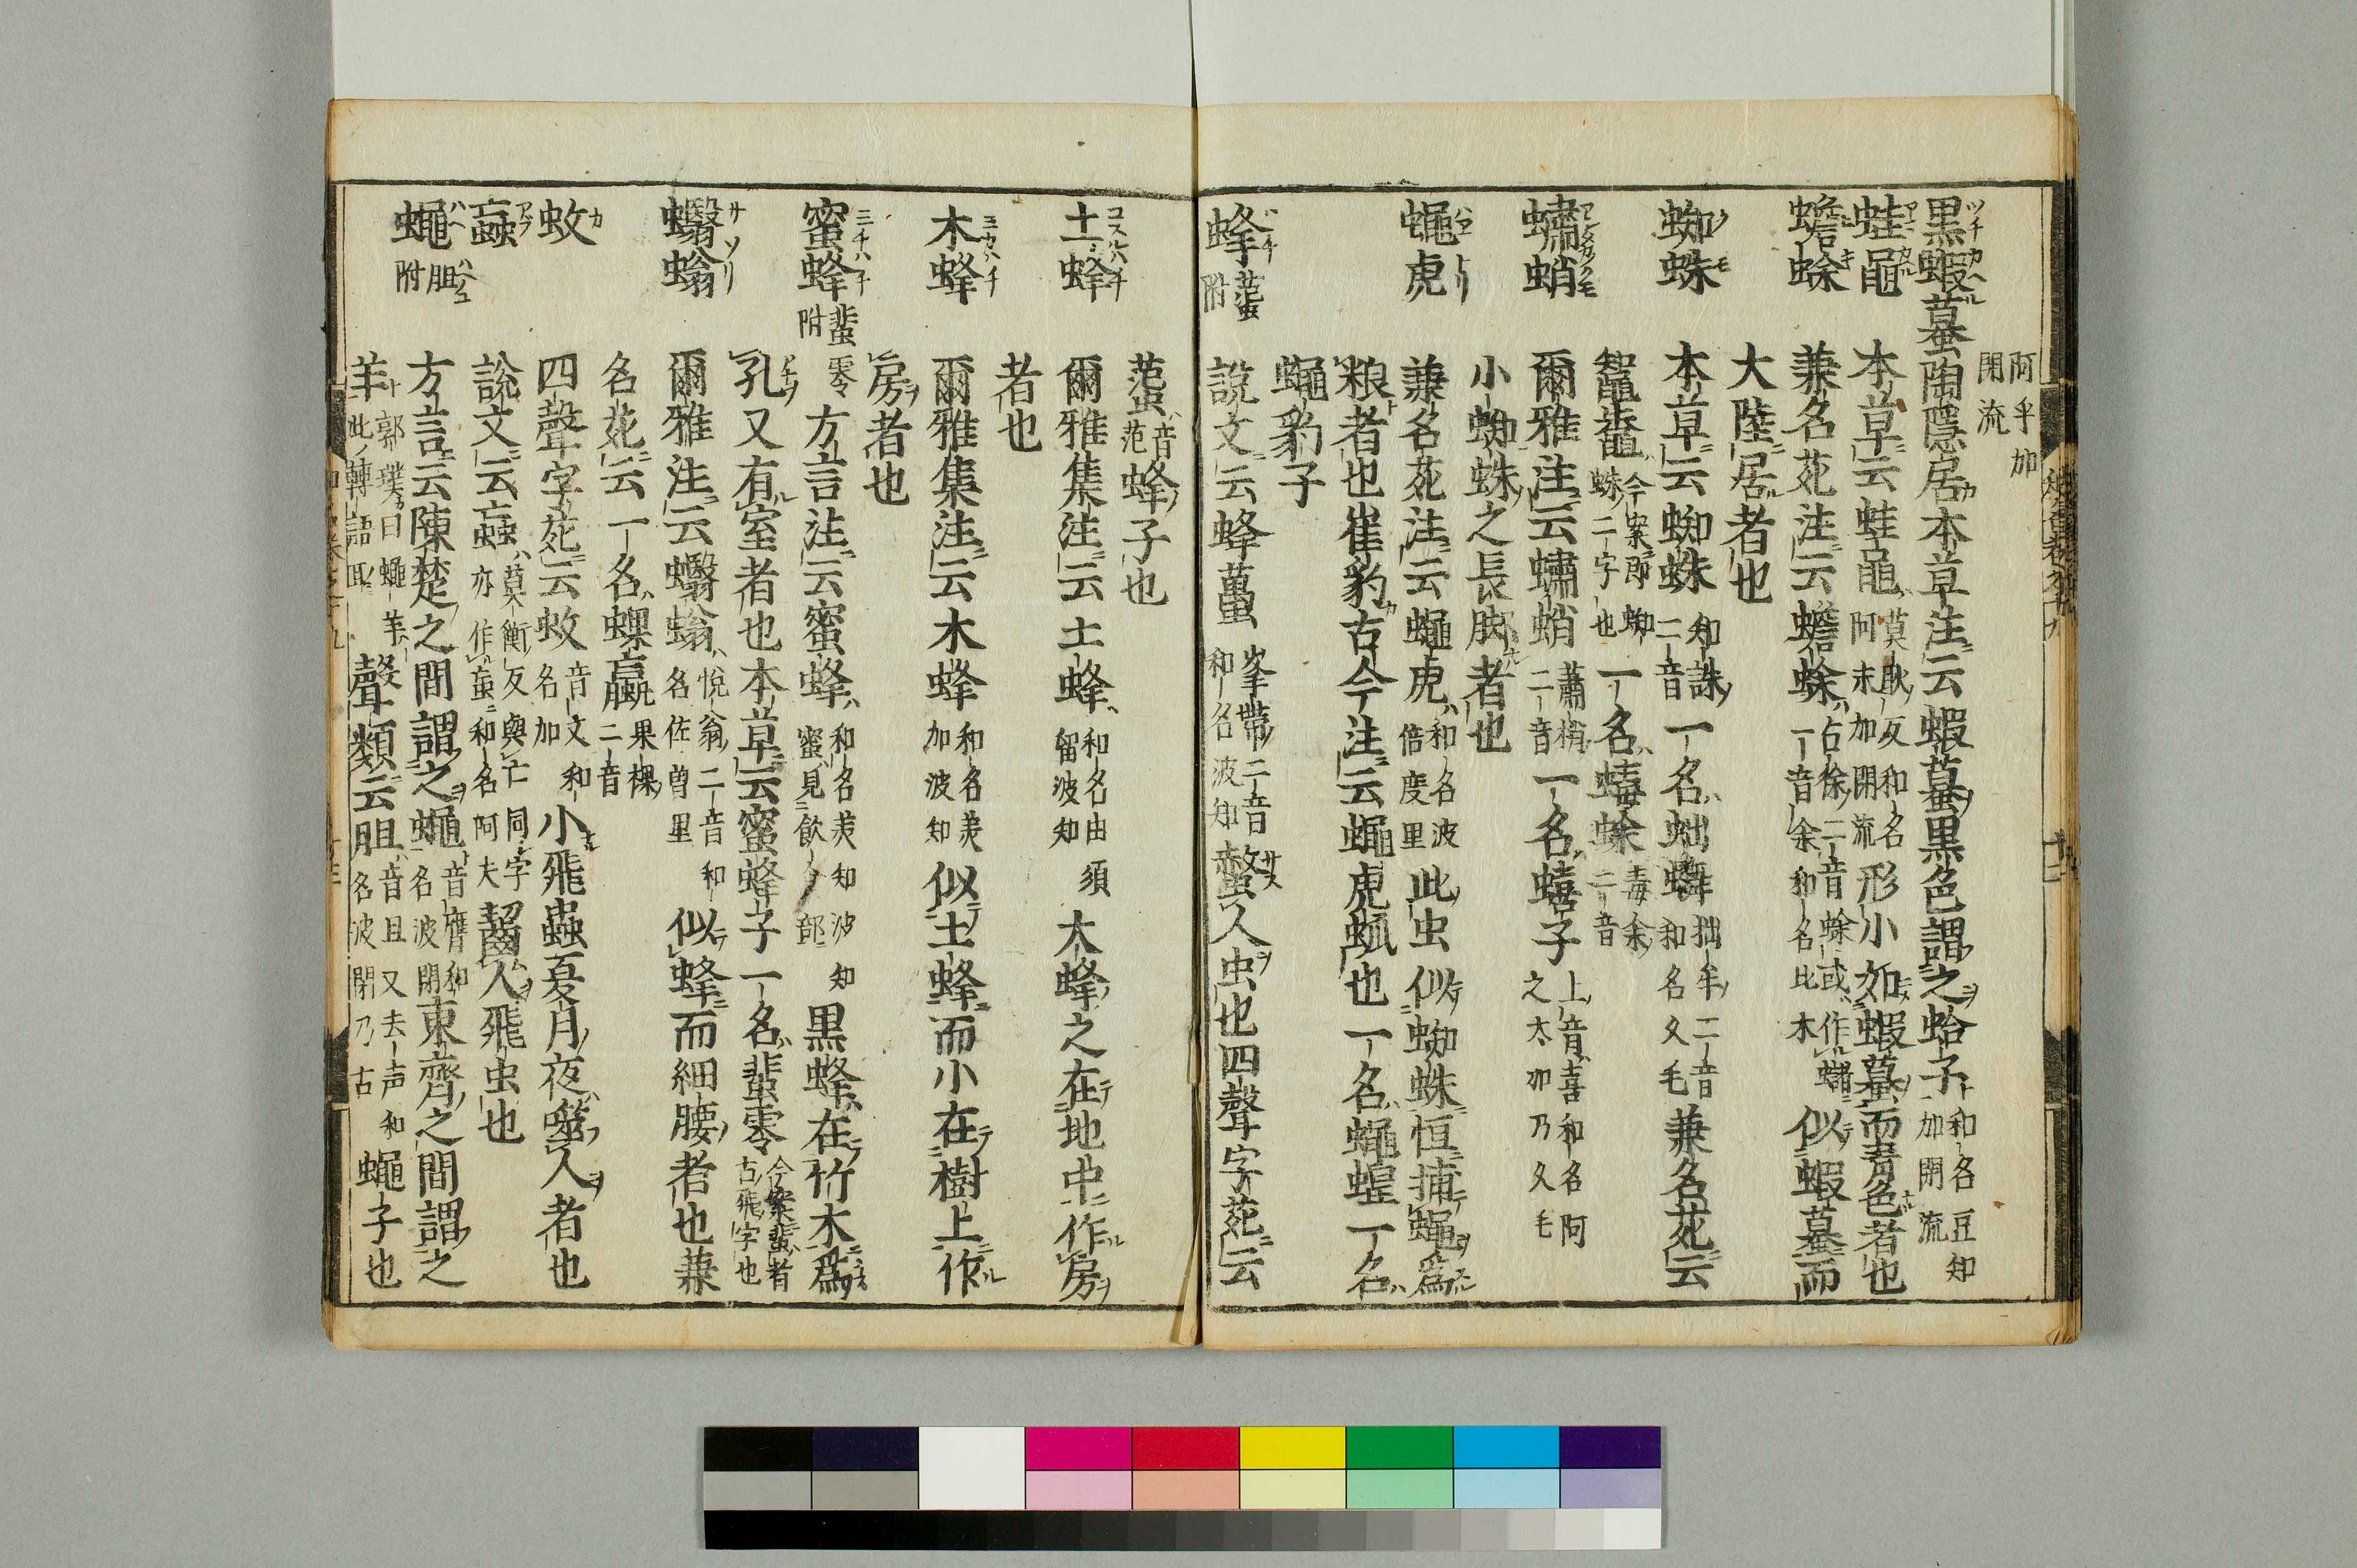 阿乎加閇流
黒蝦蟇 陶隱居本草注云蝦蟇黒色謂之蛤子 和名豆知加閇流
蛙黽 本草云蛙黽 莫耿反和名阿末加閇流 形小如蝦蟇而青色者也
蟾蜍 兼名苑注云蟾蜍 占徐二音 似蝦蟇而
大陸居者也
蜘蛛 本草云蜘蛛 知誅二音 一名䖦蟱 拙牟二音和名久毛 兼名苑云
鼅鼄 今案即蜘蛛二字也 一名蝳蜍 毒余二音
蠨蛸 爾雅注云蠨蛸 蕭梢二音 一名蟢子 上音喜和名阿之太加乃久毛
小蜘蛛之長脚者也
蠅虎 兼名苑注云蠅虎 和名波倍度里 此虫似蜘蛛恒捕蠅爲
粮者也崔豹古今注云蠅虎蛛也一名蠅蝗一名
蠅豹子
蜂 蠆附 說文云蜂蠆 峯帶二音和名波知 螫人虫也四聲字苑云
䘃 音范 蜂子也
土蜂 爾雅集注云土蜂 和名由須留波知 大蜂之在地中作房
者也
木蜂 爾雅集注云木蜂 和名美加波知 似土蜂而小在樹上作
房者也
蜜蜂 蜚零附 方言注云蜜蜂 和名美知波知蜜見飲食部 黒蜂在竹木爲
孔又有室者也本草云蜜蜂子一名蜚零 今案蜚者古飛字也
蠮螉 爾雅注云蠮螉 悅翁二音和名佐曽里 似蜂而細腰者也兼
名苑云一名蜾蠃 果裸二音
蚊 四聲字苑云蚊 音文和名加 小飛蟲夏月夜噬人者也
䖟 說文云䖟 莫衡反與亡同字亦作蝱和名阿夫 齧人飛虫也
蠅 胆附 方言云陳楚之間謂之蠅 音膺和名波閇 東齊之間謂之
羊 郭璞曰蠅羊此轉語耳 聲類云胆 音且又去声和名波閇乃古 蠅子也